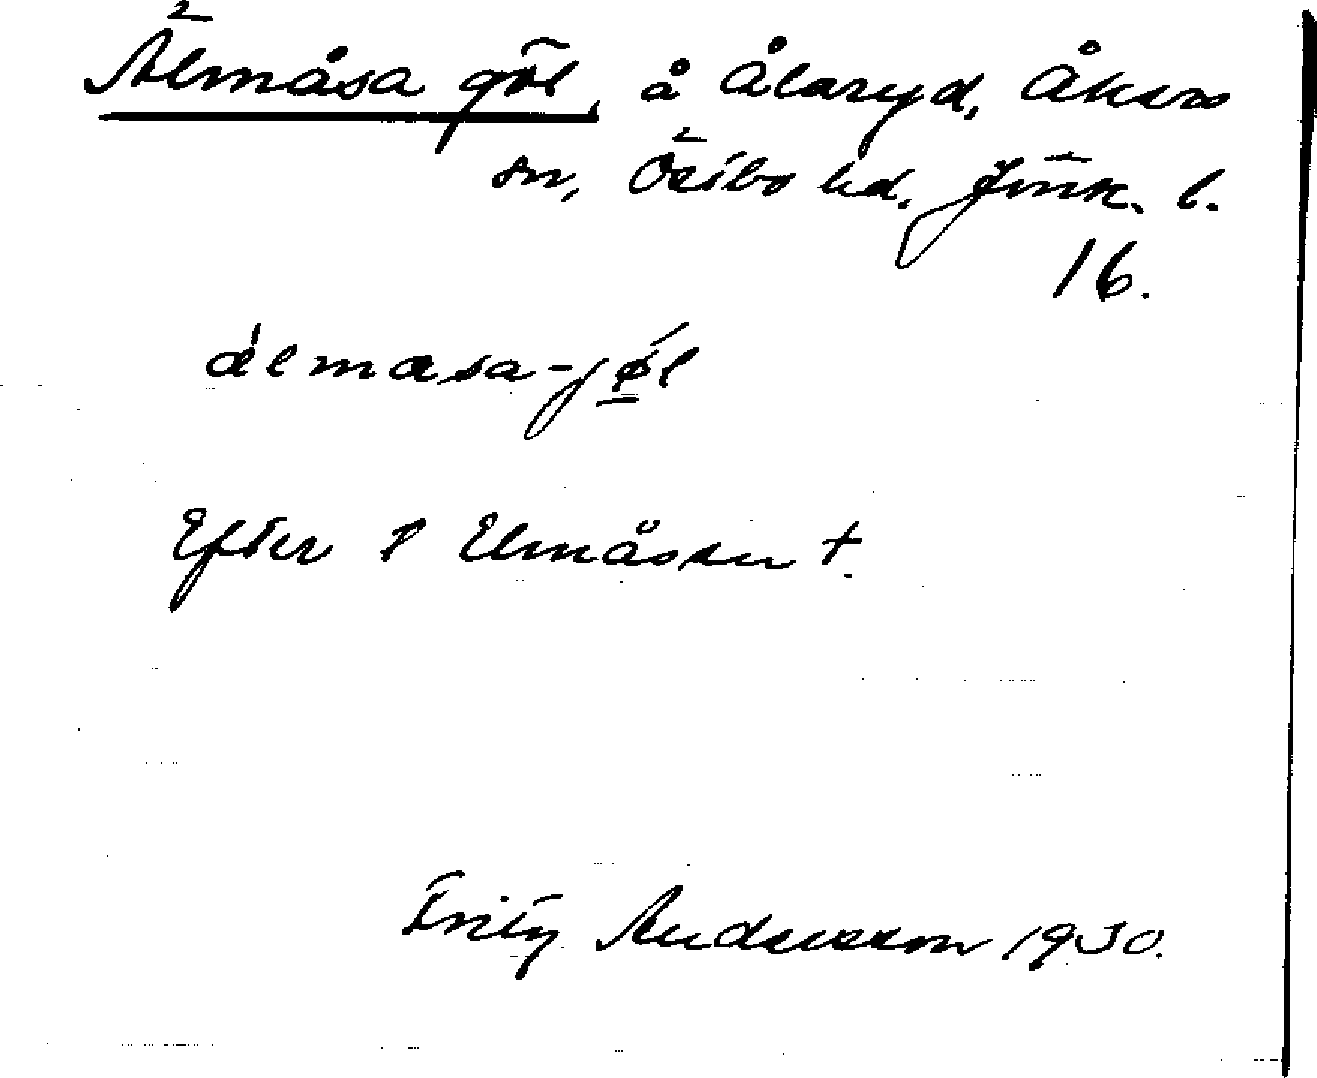 Älmåsa göl, å Ålaryd, Åkers
sn, Östbo hd. Jönk. l.
16.
álmasa-jøl
Efter t Elmåsen †.
Frity Andersson 1930.